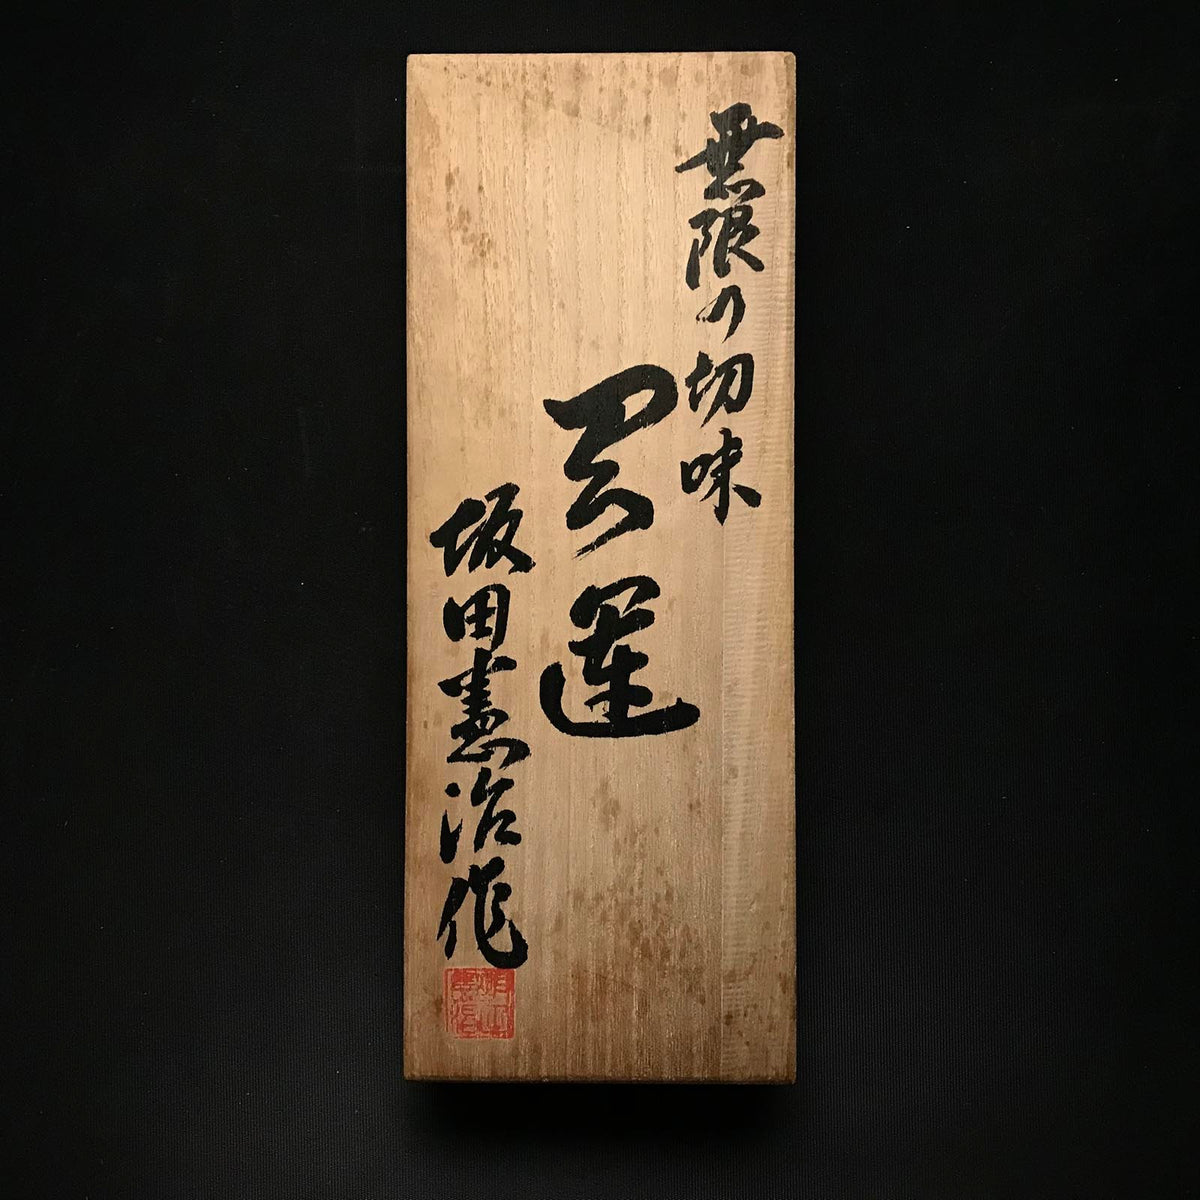 無限の切味
開運
坂田憲治作